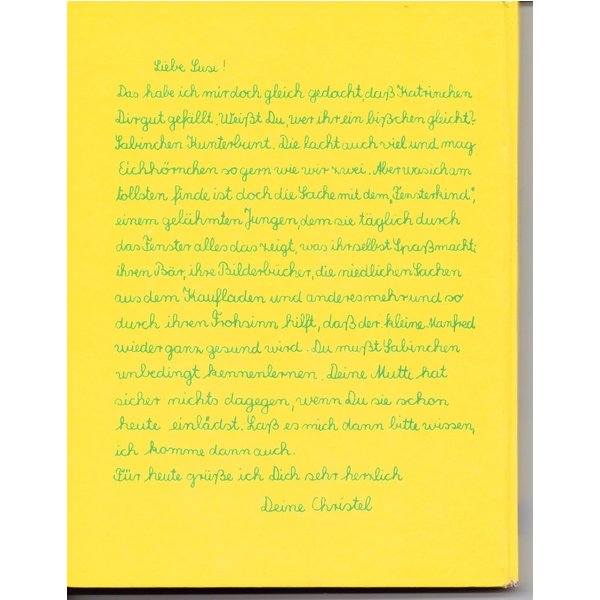 Liebe Susi!
Das habe ich mir doch gleich gedacht, daß Katrinchen
Dir gut gefällt. Weißt Du, wer ihr ein bißchen gleicht?
Sabinchen Kunterbunt. Die lacht auch viel und mag
Eichhörnchen so gern wie wir zwei. Aber was ich am
tollsten finde ist doch die Sache mit dem „Fensterkind“,
einem gelähmten Jungen, dem sie täglich durch
das Fenster alles das zeigt, was ihr selbst Spaß macht:
ihren Bär, ihre Bilderbücher, die niedlichen Sachen
aus dem Kaufladen und anderes mehr und so
durch ihren Frohsinn hilft, daß der kleine Manfred
wieder ganz gesund wird. Du mußt Sabinchen
unbedingt kennenlernen. Deine Mutti hat
sicher nichts dagegen, wenn Du sie schon
heute einlädst. Laß es mich dann bitte wissen,
ich komme dann auch.
Für heute grüße ich Dich sehr herzlich
Deine Christel